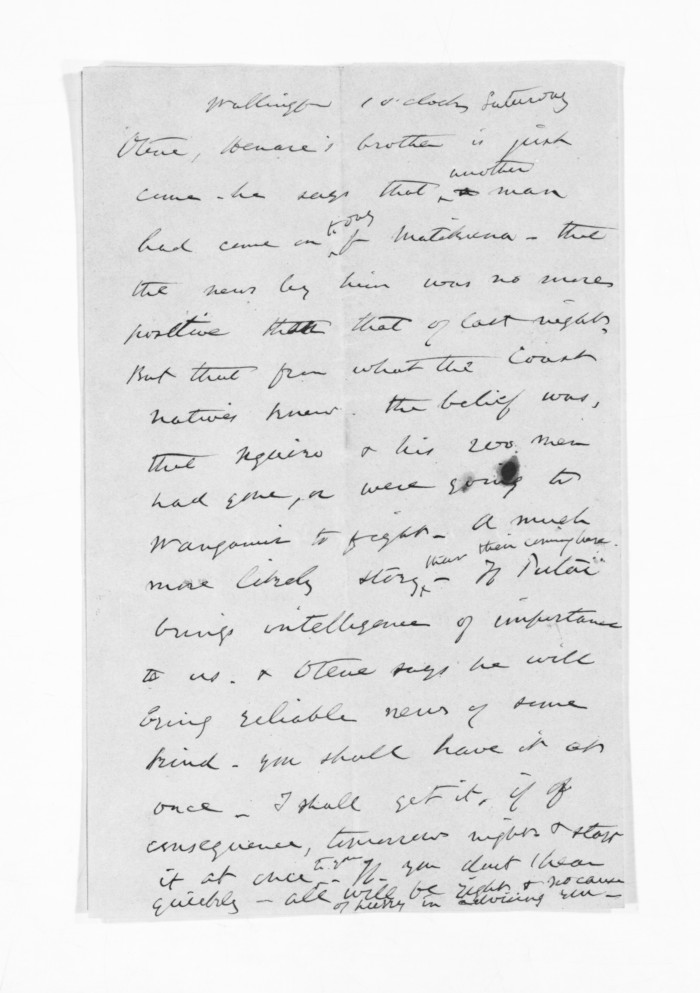 Wellington 1 o'clock Saturday
Otene, Henare's brother is just
come - he says that another man
had come on to day fr Matikuna - that
the news by him was no more
positive than that of last night.
But that from what the Coast
natives knew. the belief was,
that & his 200 men
had gone, or were going to
Wanganui to fight - A much
more likely story than their coming here. - If
brings intelligence of importance
to us. & Otene says he will
bring reliable news of some
kind - you shall have it at
once - I shall get it, if of
consequence, tomorrow night &
it at once to you - If you dont hear
quickly - all will be right & no cause
of hurry in advising you -